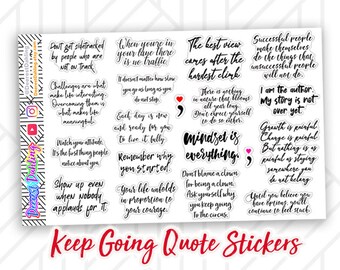 Don't get sidetracked
by people who are
not on track.
Challenges are what
make life interesting.
Overcoming them is
what makes life
meaningful.
Watch your attitude.
It's the first thing people
notice about you.
Show up even
when nobody
applauds for it.
When you're in
your lane there
is no traffic.
It doesnt matter how slow
you go as long as you
do not stop.
Each day is new
and ready for you
to live it fully.
Remember why
you started.
Your life unfolds
in proportion to
your courage.
The best view
comes after the
hardest climb.
There is
an
all year long.
Don't expect
to do so
Mindset is
everything.
Don't blame a clown
for being a clown.
Ask yourself why
you keep going
to the circus.
Successful people
make themselves
do the things that
unsuccessful people
will not do.
I am the author.
My story is not
over yet.
Growth is painful
Change is painful
But nothing is as
painful as staying
somewhere you
do not belong
Until you believe you
have options, you'll
continue to feel stuck.
Keep Going Quote Stickers